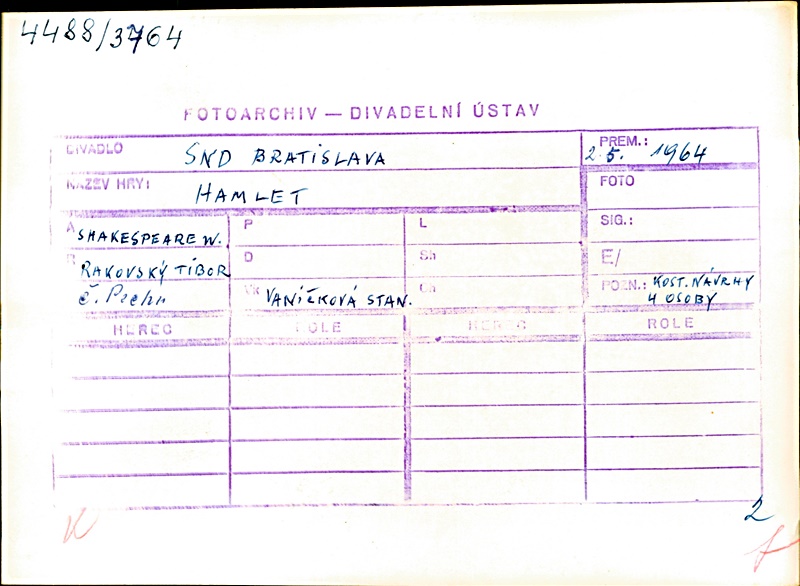 4488/3764
FOTOARCHIV — DIVADELNÍ ÚSTAV
DIVADLO SND BRATISLAVA PREM.: 2.5. 1964
NÁZEV HRY: HAMLET FOTO
A SHAKESPEARE W. P L SIG.:
R RAKOVSKÝ TIBOR D Sh E/
Vk VANÍČKOVÁ STAN. Ch POZN.: KOST. NÁVRHY
4 OSOBY
HEREC ROLE HEREC ROLE
K 2